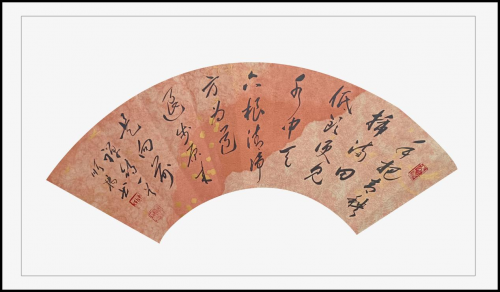 手把青秧
插满田
低头便见
水中天
六根清净
方为道
退步原来
是向前